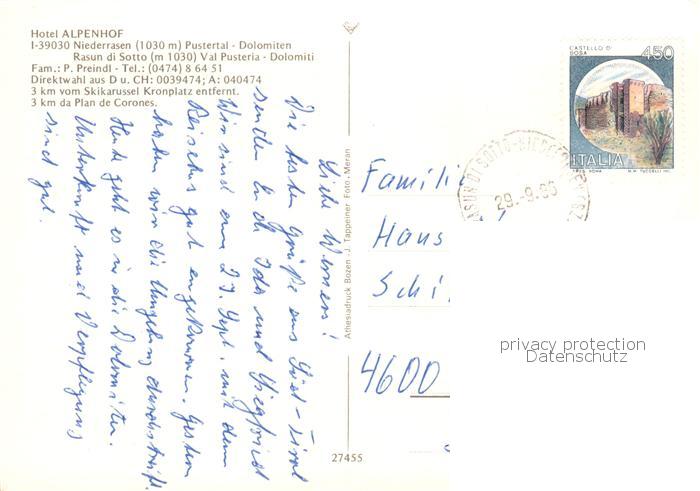 Hotel ALPENHOF
I-39030 Niederrasen (1030 m) Pustertal - Dolomiten
Rasun di Sotto (m 1030) Val Pusteria - Dolomiti
Fam.: P. Preindl - Tel.: (0474) 8 64 51
Direktwahl aus D u. CH: 0039474; A: 040474
3 km vom Skikarussel Kronplatz entfernt.
3 km da Plan de Corones.
Liebe Werners!
Die besten Grüße aus Süd-Tirol
senden Euch Ida und Siegfried
Wir sind am 27. Sept. mit dem
Reisebus gut angekommen. Gestern
haben wir die Umgebung durchstreift.
Heute geht es in die Dolomiten.
Unterkunft und Verpflegung
sind gut.
Athesiadruck Bozen . J. Tappeiner Foto, Meran
27455
CASTELLO DI
ROSA
450
ITALIA
RASUN DI SOTTO-NIEDER
29.-9.86
Familie
Hans
Schi
4600
privacy protection
Datenschutz